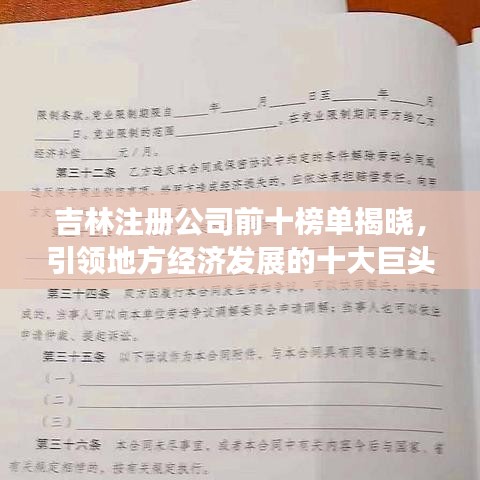 限制条款。竞业限制期限自____年____月____日至____年____月
____日。竞业限制的范围____________。在竞业限制期间甲方给乙方
经济补偿____元/月。
第三十二条 乙方违反本合同或保密协议中约定的条件解除劳动合同或
吉林注册公司前十榜单揭晓，
引领地方经济发展的十大巨头
第三十四条
成的，当事人可以向本单位劳动争议调解委员会申请调解；当事人也可以依法
申请仲裁、提起诉讼。
第三十五条 以下协议作为本合同附件，与本合同具有同等法律效力。
（一）
（二）
（三）
第三十六条 本合同未尽事宜，或者本合同中有关内容今后与国家、省
有关规定相悖的，按有关规定执行。